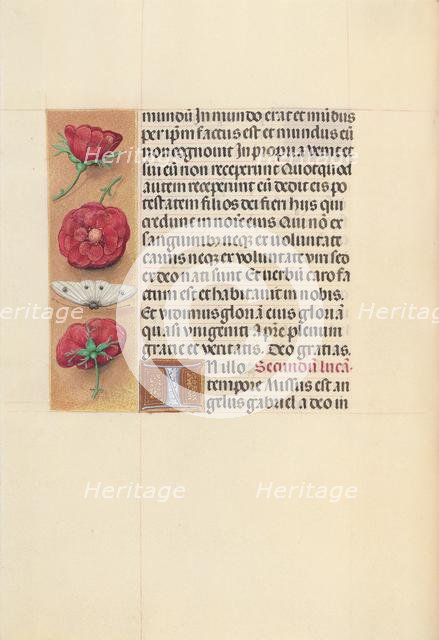 mundū In mundo erat et mūdus
per ip̄m factus est et mundus eū
non cognouit In propria venit et
sui eū non receperunt Quotquod
autem receperunt eū dedit eis po
testatem filios dei fieri hiis qui
credunt in noīe eius Qui nō ex
sanguinibus neqꝫ ex voluntate
carnis neqꝫ ex voluntate viri sed
ex deo nati sunt Et verbū caro fa
ctum est et habitauit in nobis.
Et vidimus gloriā eius gloriā
quasi vnigeniti A pr̄e plenum
gratie et veritatis. Deo gratias.
IN illo Secundū lucā.
tempore Missus est an
gelus gabriel a deo in
Heritage
Heritage
Heritage
Heritage
Heritage
Heritage